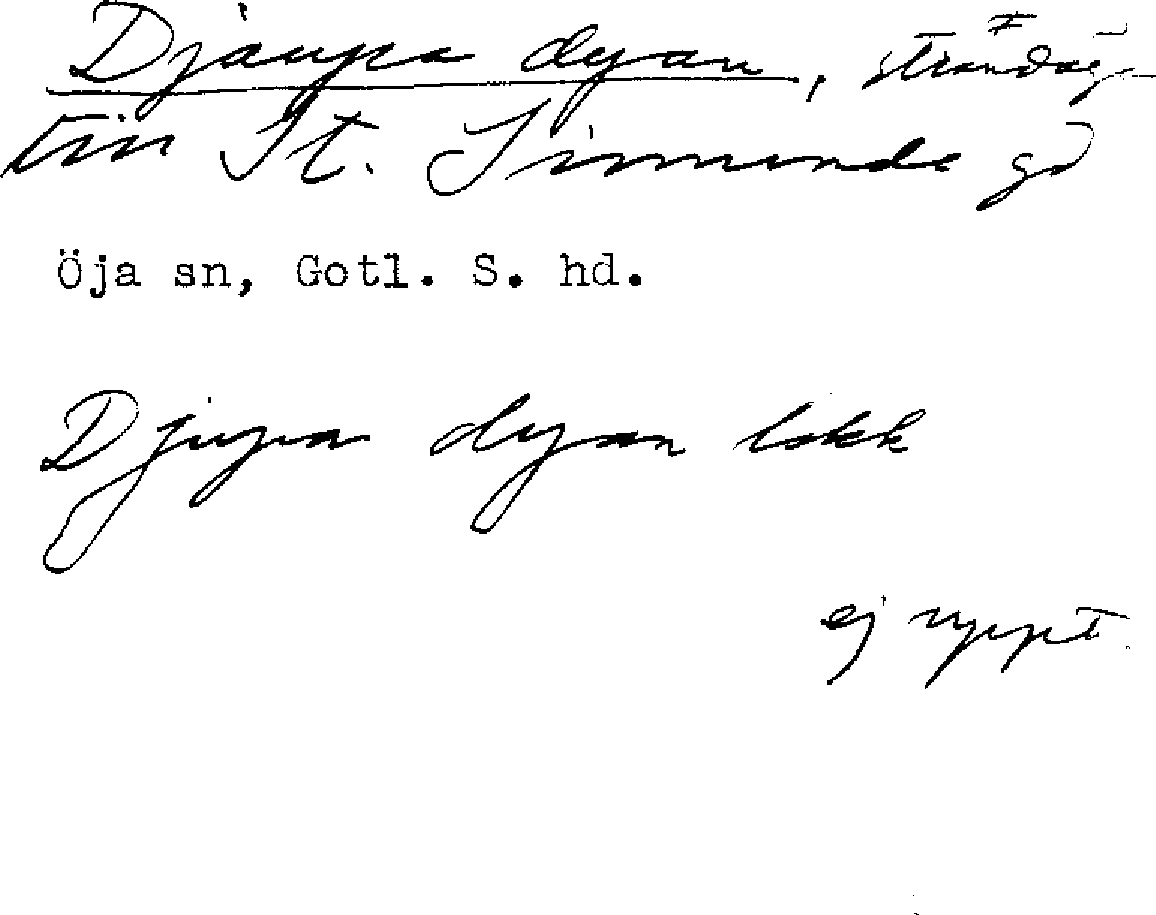 Djäupa dyan, strandäg
till St. Simunde gd
Öja sn, Gotl. S. hd.
Djupa dyan lokk
ej uppt.